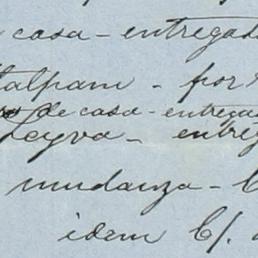 casa - entregad
Tlalpam - por
de casa - entrega
Leyva - entre
mudanza -
idem C/.